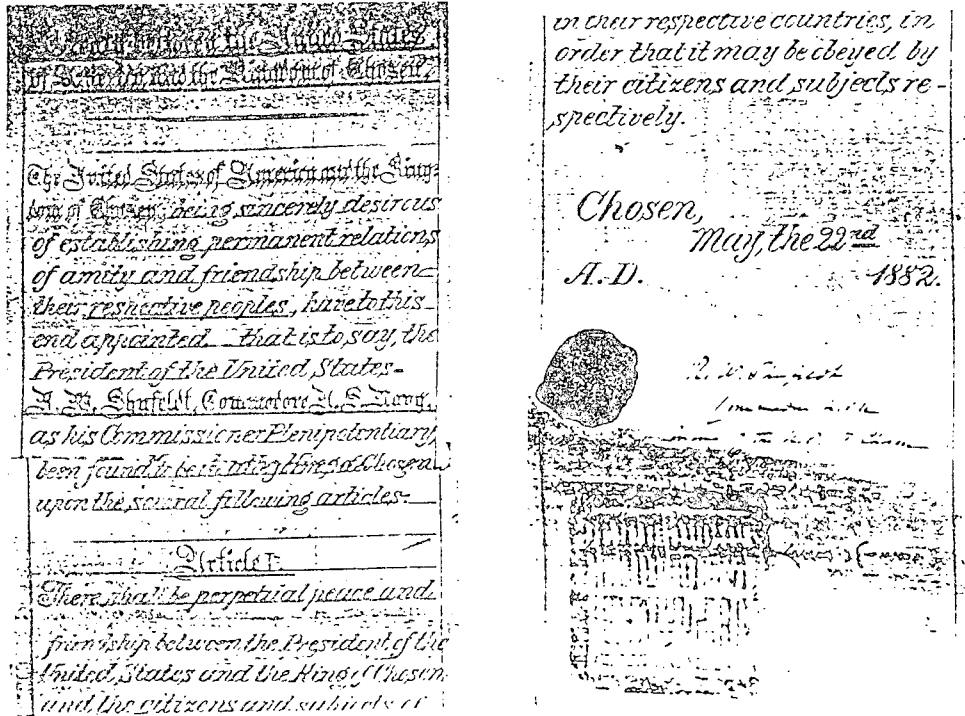 Treaty between the United States
of America and the Kingdom of Chosen.
The United States of America and the King-
dom of Chosen, being sincerely desirous
of establishing permanent relations
of amity and friendship between
their respective peoples, have to this
end appointed that is to say, the
President of the United States-
R. W. Shufeldt, Commodore U.S. Navy,
as his Commissioner Plenipotentiary,
been found to be
Chosen
upon the several following articles-
Article I.
There shall be perpetual peace and
friendship between the President of the
United States and the King of Chosen
and the citizens and subjects of
in their respective countries, in
order that it may be obeyed by
their citizens and subjects re-
spectively.
Chosen,
May, the 22nd
A.D. 1882.
R. W. Shufeldt